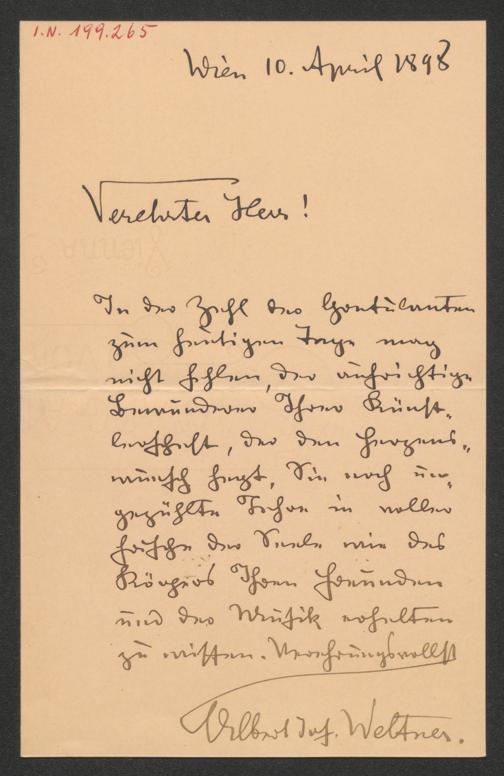 I.N. 199.265
Wien 10. April 1898
Verehrter Herr!
In der Zahl der Gratulanten
zum heutigen Tage mag
nicht fehlen, der aufrichtige
Bewunderer Ihrer Künst-
lerschaft, der den Herzens-
wunsch hegt, Sie noch un-
gezählte Jahre in voller
Frische der Seele wie des
Körpers Ihren Freunden
und der Musik erhalten
zu wissen. Verehrungsvollst
Albert Jos. Weltner.